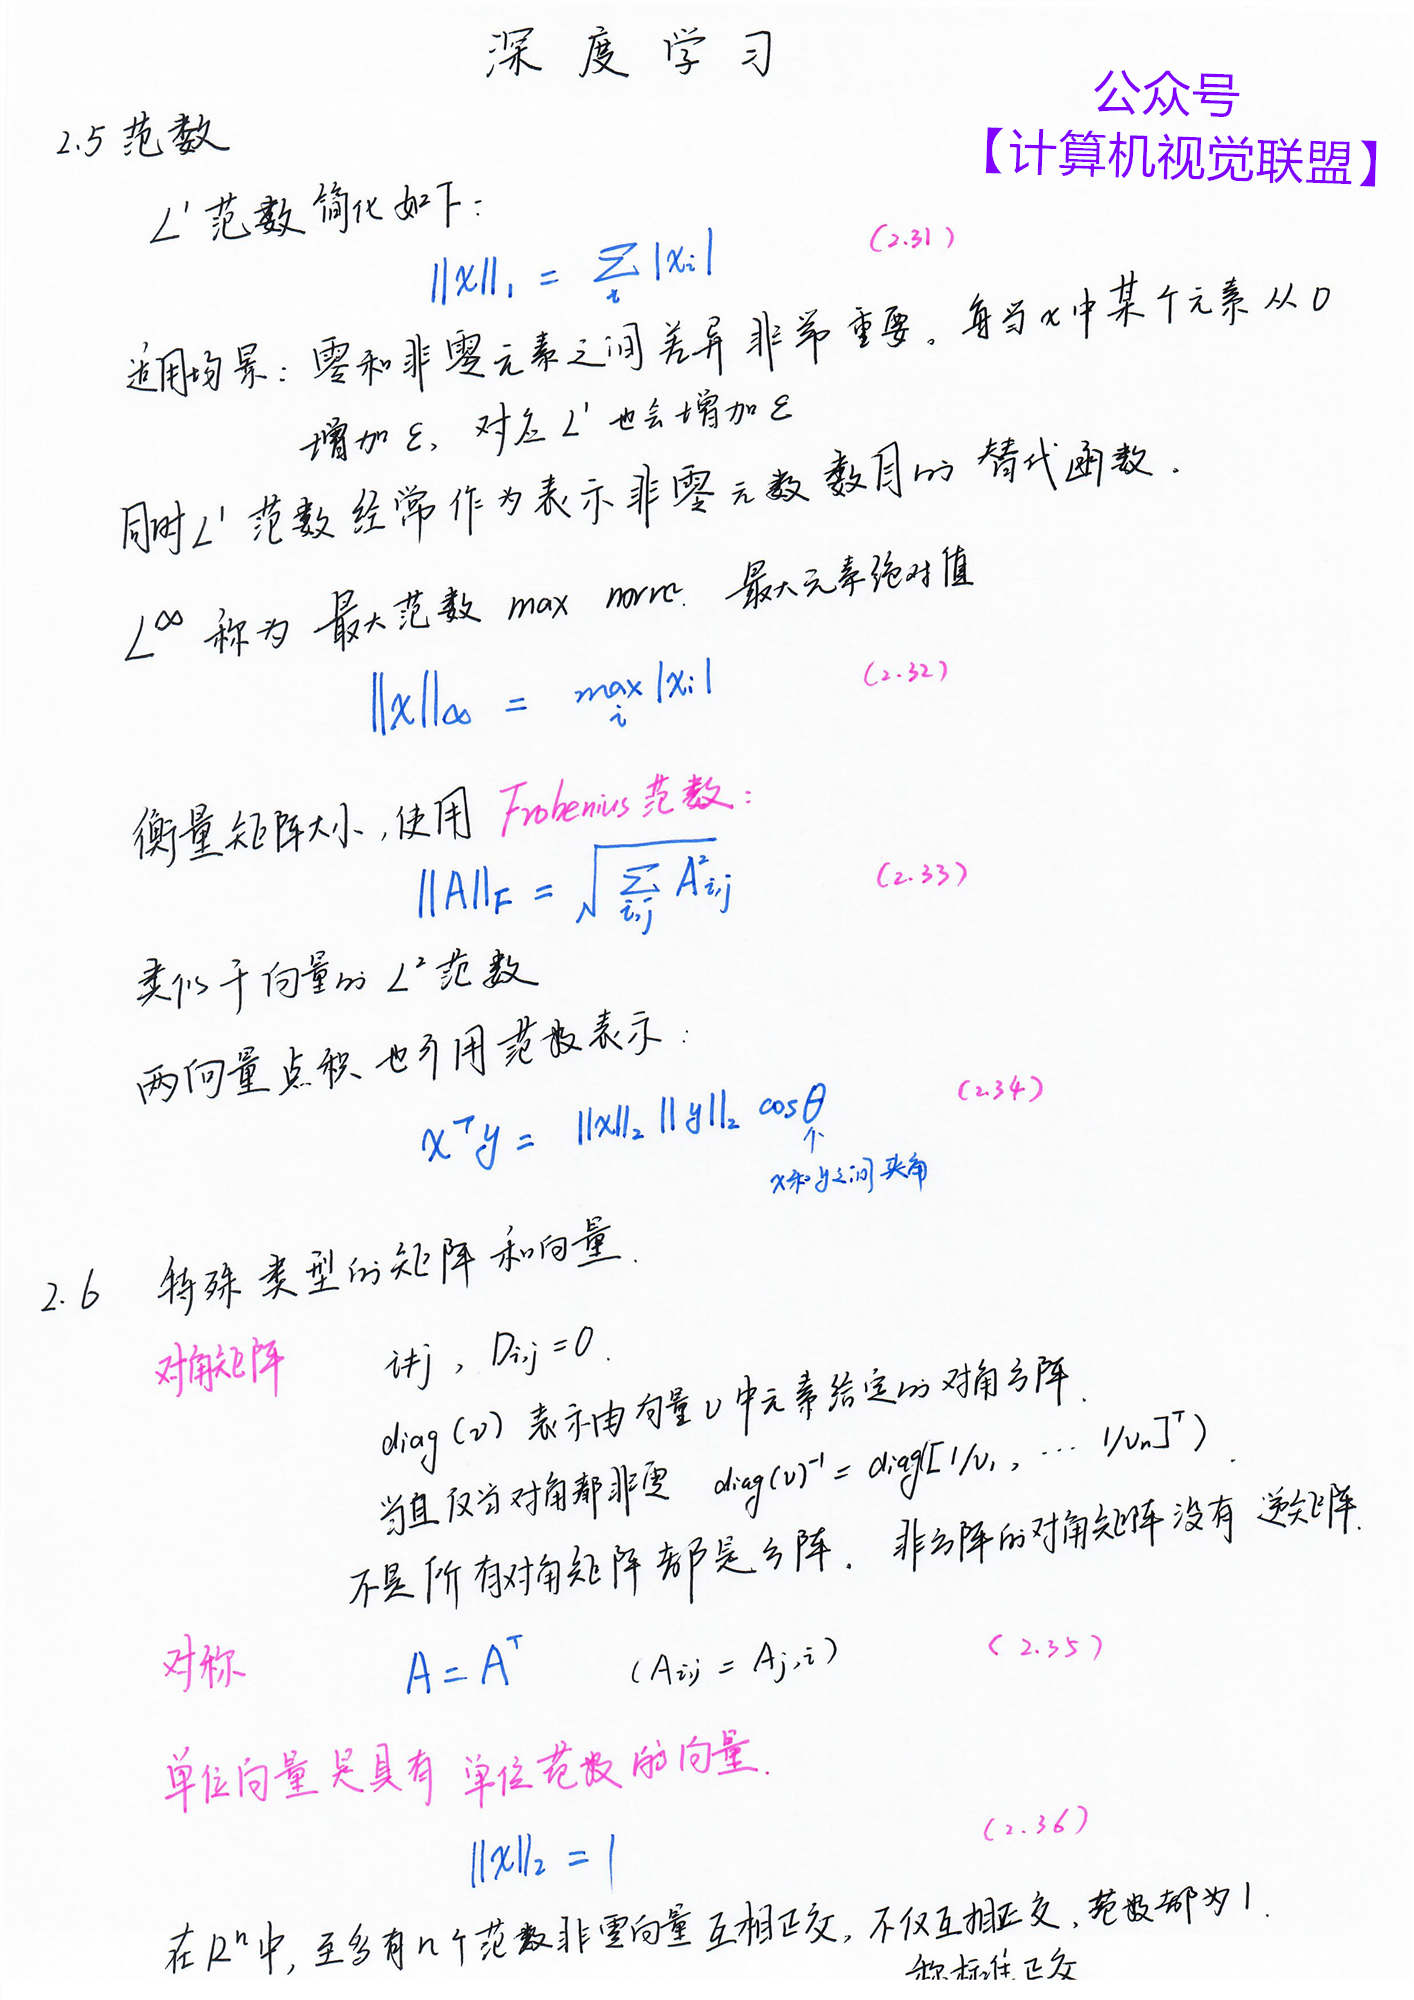 深度学习
公众号
【计算机视觉联盟】
2.5 范数
L¹ 范数简化如下：
||x||₁ = ∑ᵢ |xᵢ| (2.31)
适用场景：零和非零元素之间差异非常重要。每当x中某个元素从0
增加ε，对应L¹也会增加ε
同时L¹范数经常作为表示非零元数数目的替代函数.
L^∞ 称为 最大范数 max norm. 最大元素绝对值
||x||∞ = max_i |xᵢ| (2.32)
衡量矩阵大小，使用 Frobenius范数：
||A||_F = √(∑_{i,j} A²_{i,j}) (2.33)
类似于向量的L²范数
两向量点积也可用范数表示：
xᵀy = ||x||₂ ||y||₂ cosθ (2.34)
↑
x和y之间夹角
2.6 特殊类型的矩阵和向量.
对角矩阵 i≠j, D_{i,j} = 0.
diag(v) 表示由向量v中元素给定的对角方阵.
当且仅当对角都非零 diag(v)⁻¹ = diag([1/v₁, ··· 1/vₙ]ᵀ).
不是所有对角矩阵都是方阵. 非方阵的对角矩阵没有逆矩阵.
对称 A = Aᵀ (A_{i,j} = A_{j,i}) (2.35)
单位向量是具有 单位范数的向量.
||x||₂ = 1 (2.36)
在Rⁿ中, 至多有n个范数非零向量互相正交, 不仅互相正交, 范数都为1.
称标准正交